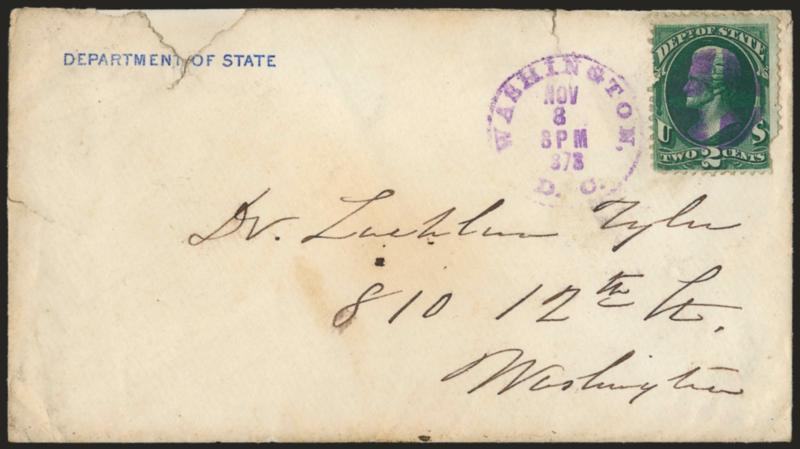 DEPARTMENT OF STATE
WASHINGTON,
NOV
8
8 PM
878
D. C.
DEPT. OF STATE
U S
TWO 2 CENTS
Dr. Lachlan Tyler
810 12th St.
Washington